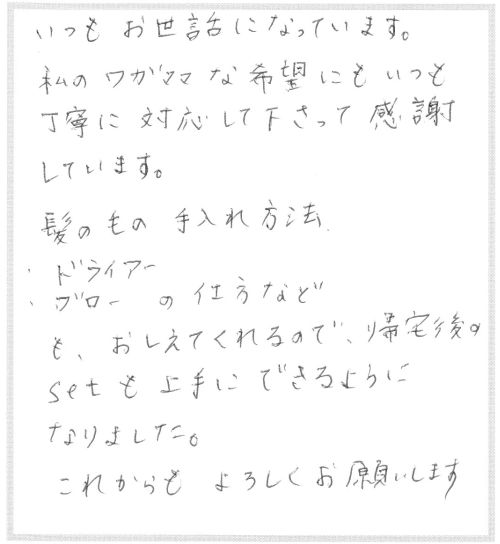 いつも お世話になっています。
私の ワガママ な 希望 にも いつも
丁寧に 対応して下さって 感謝
しています。
髪のもの 手入れ方法
・ドライアー
・ブロー の仕方など
も、おしえてくれるので、帰宅後の
setも上手にできるように
なりました。
これからも よろしくお願いします